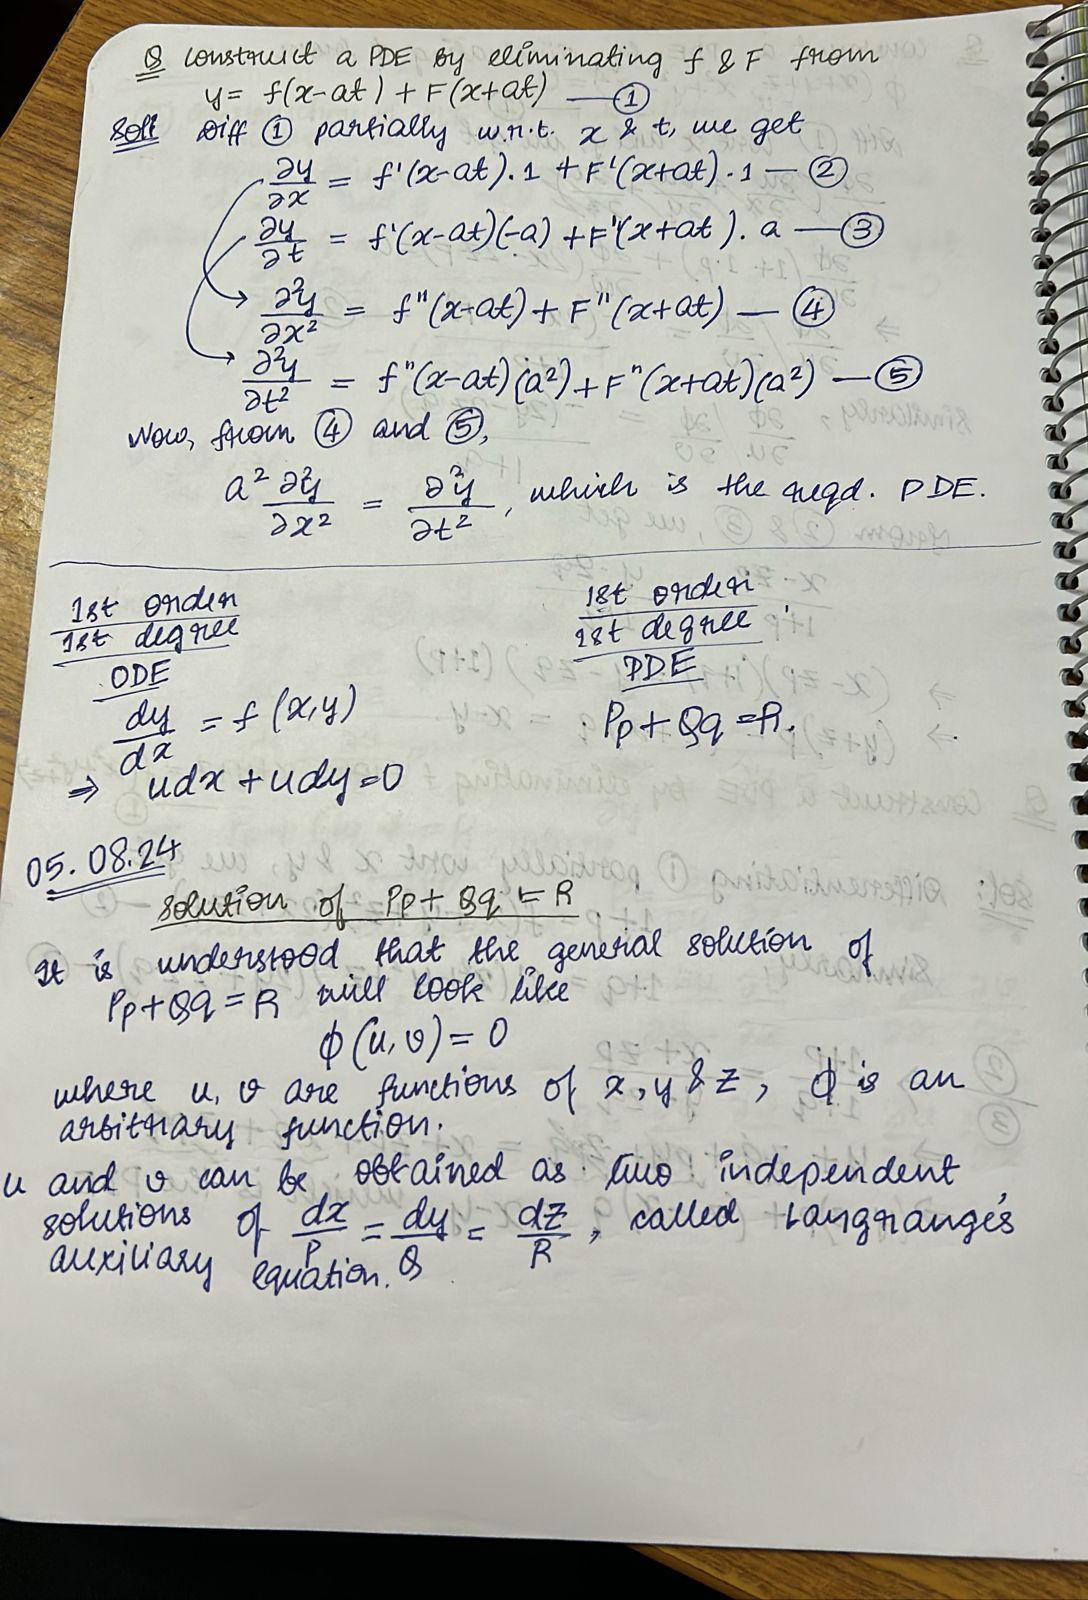 Q Construct a PDE by eliminating f & F from
y = f(x-at) + F(x+at) — ①
Soln Diff ① partially w.r.t. x & t, we get
∂y/∂x = f'(x-at).1 + F'(x+at).1 — ②
∂y/∂t = f'(x-at)(-a) + F'(x+at).a — ③
∂²y/∂x² = f"(x-at) + F"(x+at) — ④
∂²y/∂t² = f"(x-at)(a²) + F"(x+at)(a²) — ⑤
Now, from ④ and ⑤,
a² ∂²y/∂x² = ∂²y/∂t², which is the reqd. PDE.
1st order
1st degree
ODE
dy/dx = f(x,y)
⇒ udx + udy = 0
1st order
1st degree
PDE
Pp + Qq = R.
05.08.24
Solution of Pp + Qq = R
It is understood that the general solution of
Pp + Qq = R will look like
ϕ(u, v) = 0
where u, v are functions of x, y & z, ϕ is an
arbitrary function.
u and v can be obtained as two independent
solutions of dx/P = dy/Q = dz/R, called Langrange's
auxiliary equation.